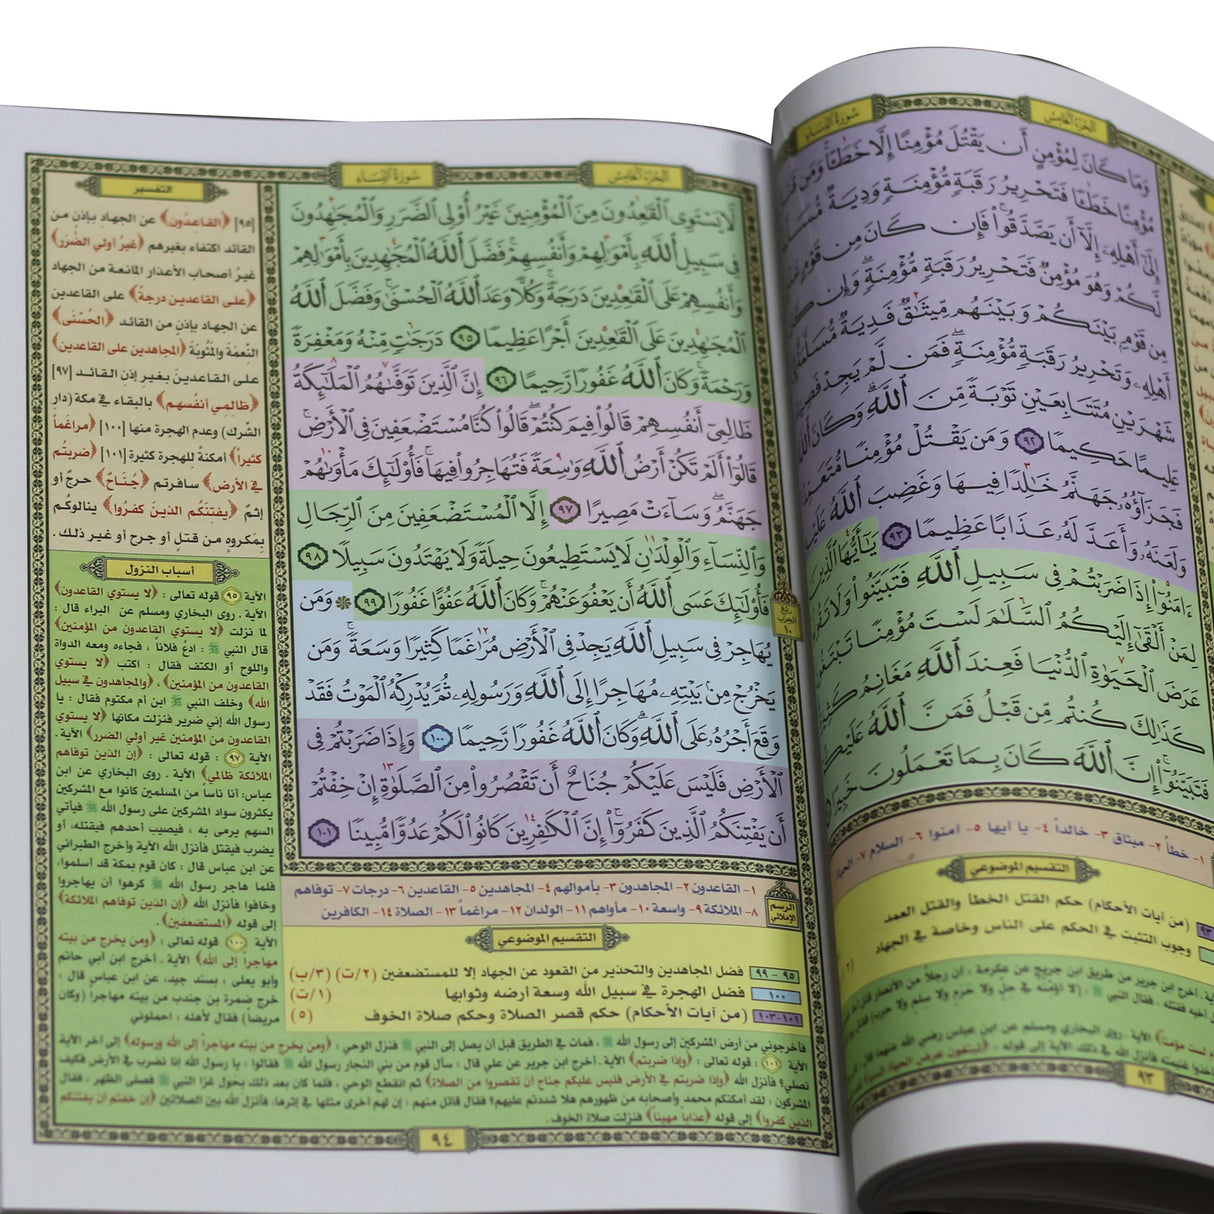 الجزء الخامس
سورة النساء
وَمَا كَانَ لِمُؤْمِنٍ أَن يَقْتُلَ مُؤْمِنًا إِلَّا خَطَـًٔا ۚ وَمَن
مُؤْمِنًا خَطَـًٔا فَتَحْرِيرُ رَقَبَةٍ مُّؤْمِنَةٍ وَدِيَةٌ
إِلَىٰٓ أَهْلِهِۦٓ إِلَّآ أَن يَصَّدَّقُوا۟ ۚ فَإِن كَانَ مِن قَوْمٍ
لَّكُمْ وَهُوَ مُؤْمِنٌ فَتَحْرِيرُ رَقَبَةٍ مُّؤْمِنَةٍ ۖ وَإِن
مِن قَوْمٍ بَيْنَكُمْ وَبَيْنَهُم مِّيثَـٰقٌ فَدِيَةٌ مُّسَلَّمَةٌ
أَهْلِهِۦ وَتَحْرِيرُ رَقَبَةٍ مُّؤْمِنَةٍ ۖ فَمَن لَّمْ يَجِدْ
شَهْرَيْنِ مُتَتَابِعَيْنِ تَوْبَةً مِّنَ ٱللَّهِ ۗ وَكَانَ
عَلِيمًا حَكِيمًا ٩٢ وَمَن يَقْتُلْ مُؤْمِنًا
فَجَزَآؤُهُۥ جَهَنَّمُ خَـٰلِدًا فِيهَا وَغَضِبَ ٱللَّهُ
وَلَعَنَهُۥ وَأَعَدَّ لَهُۥ عَذَابًا عَظِيمًا ٩٣ يَـٰٓأَيُّهَا
ءَامَنُوٓا۟ إِذَا ضَرَبْتُمْ فِى سَبِيلِ ٱللَّهِ فَتَبَيَّنُوا۟ وَلَا
لِمَنْ أَلْقَىٰٓ إِلَيْكُمُ ٱلسَّلَـٰمَ لَسْتَ مُؤْمِنًا
عَرَضَ ٱلْحَيَوٰةِ ٱلدُّنْيَا فَعِندَ ٱللَّهِ مَغَانِمُ
كَذَٰلِكَ كُنتُم مِّن قَبْلُ فَمَنَّ ٱللَّهُ
فَتَبَيَّنُوٓا۟ ۚ إِنَّ ٱللَّهَ كَانَ بِمَا تَعْمَلُونَ
١- خطأ ٢- ميثاق ٣- خالداً ٤- يا أيها ٥- آمنوا ٦- السلام ٧-
التقسيم الموضوعي
٩٣ (من آيات الأحكام) حكم القتل الخطأ والقتل العمد
وجوب التثبت في الحكم على الناس وخاصة في الجهاد
٩٣
الجزء الخامس
سورة النساء
لَّا يَسْتَوِى ٱلْقَـٰعِدُونَ مِنَ ٱلْمُؤْمِنِينَ غَيْرُ أُو۟لِى ٱلضَّرَرِ وَٱلْمُجَـٰهِدُونَ
فِى سَبِيلِ ٱللَّهِ بِأَمْوَٰلِهِمْ وَأَنفُسِهِمْ ۚ فَضَّلَ ٱللَّهُ ٱلْمُجَـٰهِدِينَ بِأَمْوَٰلِهِمْ
وَأَنفُسِهِمْ عَلَى ٱلْقَـٰعِدِينَ دَرَجَةً ۚ وَكُلًّا وَعَدَ ٱللَّهُ ٱلْحُسْنَىٰ ۚ وَفَضَّلَ ٱللَّهُ
ٱلْمُجَـٰهِدِينَ عَلَى ٱلْقَـٰعِدِينَ أَجْرًا عَظِيمًا ٩٥ دَرَجَـٰتٍ مِّنْهُ وَمَغْفِرَةً
وَرَحْمَةً ۚ وَكَانَ ٱللَّهُ غَفُورًا رَّحِيمًا ٩٦ إِنَّ ٱلَّذِينَ تَوَفَّىٰهُمُ ٱلْمَلَـٰٓئِكَةُ
ظَالِمِىٓ أَنفُسِهِمْ قَالُوا۟ فِيمَ كُنتُمْ ۖ قَالُوا۟ كُنَّا مُسْتَضْعَفِينَ فِى ٱلْأَرْضِ ۚ
قَالُوٓا۟ أَلَمْ تَكُنْ أَرْضُ ٱللَّهِ وَٰسِعَةً فَتُهَاجِرُوا۟ فِيهَا ۚ فَأُو۟لَـٰٓئِكَ مَأْوَىٰهُمْ
جَهَنَّمُ ۖ وَسَآءَتْ مَصِيرًا ٩٧ إِلَّا ٱلْمُسْتَضْعَفِينَ مِنَ ٱلرِّجَالِ
وَٱلنِّسَآءِ وَٱلْوِلْدَٰنِ لَا يَسْتَطِيعُونَ حِيلَةً وَلَا يَهْتَدُونَ سَبِيلًا ٩٨
فَأُو۟لَـٰٓئِكَ عَسَى ٱللَّهُ أَن يَعْفُوَ عَنْهُمْ ۚ وَكَانَ ٱللَّهُ عَفُوًّا غَفُورًا ٩٩ ۞ وَمَن
يُهَاجِرْ فِى سَبِيلِ ٱللَّهِ يَجِدْ فِى ٱلْأَرْضِ مُرَٰغَمًا كَثِيرًا وَسَعَةً ۚ وَمَن
يَخْرُجْ مِنۢ بَيْتِهِۦ مُهَاجِرًا إِلَى ٱللَّهِ وَرَسُولِهِۦ ثُمَّ يُدْرِكْهُ ٱلْمَوْتُ فَقَدْ
وَقَعَ أَجْرُهُۥ عَلَى ٱللَّهِ ۗ وَكَانَ ٱللَّهُ غَفُورًا رَّحِيمًا ١٠٠ وَإِذَا ضَرَبْتُمْ فِى
ٱلْأَرْضِ فَلَيْسَ عَلَيْكُمْ جُنَاحٌ أَن تَقْصُرُوا۟ مِنَ ٱلصَّلَوٰةِ إِنْ خِفْتُمْ
أَن يَفْتِنَكُمُ ٱلَّذِينَ كَفَرُوٓا۟ ۚ إِنَّ ٱلْكَـٰفِرِينَ كَانُوا۟ لَكُمْ عَدُوًّا مُّبِينًا ١٠١
ربع
الحزب
١٠
الرسم الإملائي
١- القاعدون ٢- المجاهدون ٣- بأموالهم ٤- المجاهدين ٥- القاعدين ٦- درجات ٧- توفاهم
٨- الملائكة ٩- واسعة ١٠- مأواهم ١١- الولدان ١٢- مراغماً ١٣- الصلاة ١٤- الكافرين
التقسيم الموضوعي
٩٥ - ٩٩ فضل المجاهدين والتحذير من القعود عن الجهاد إلا للمستضعفين (٢/ت) (٣/ب)
١٠٠ فضل الهجرة في سبيل الله وسعة أرضه وثوابها (١/ت)
١٠١-١٠٣ (من آيات الأحكام) حكم قصر الصلاة وحكم صلاة الخوف (٥)
التفسير
[٩٥] ﴿القاعدُون﴾ عن الجهاد بإذن من
القائد اكتفاء بغيرهم ﴿غيرُ أولي الضَّرَر﴾
غيرُ أصحاب الأعذار المانعة من الجهاد
﴿على القاعدين درجةً﴾ على القاعدين
عن الجهاد بإذن من القائد ﴿الحُسْنَى﴾
النِّعمَة والمَثُوبَة ﴿المجاهدين على القاعدين﴾
على القاعدينَ بغير إذن القائـد [٩٧]
﴿ظالمِي أنفُسهم﴾ بالبقاء في مكة (دار
الشّرك) وعدم الهجرة منها [١٠٠] ﴿مراغَماً
كثيراً﴾ أمكنةً للهجرة كثيرة [١٠١] ﴿ضربتُم
في الأرض﴾ سافرتم ﴿جُنَاحٌ﴾ حرجٌ أو
إثمٌ ﴿يفتِنَكُم الذين كفرُوا﴾ ينالوكُم
بمَكروهٍ من قتلٍ أو جرح أو غير ذلك.
أسباب النزول
الآية ٩٥ قوله تعالى: ﴿لا يستوي القاعدون﴾
الآية. روى البخاري ومسلم عن البراء قال:
لما نزلت ﴿لا يستوي القاعدون من المؤمنين﴾
قال النبي ﷺ: ادعُ فلاناً، فجاءه ومعه الدواة
واللوح أو الكتف فقال: اكتب ﴿لا يستوي
القاعدون من المؤمنين﴾، ﴿والمجاهدون في سبيل
الله﴾ وخلف النبي ﷺ ابن أم مكتوم فقال: يا
رسول الله إني ضرير فنزلت مكانها ﴿لا يستوي
القاعدون من المؤمنين غير أولي الضرر﴾ الآية.
الآية ٩٧ قوله تعالى: ﴿إن الذين توفاهم
الملائكة ظالمي﴾ الآية. روى البخاري عن ابن
عباس: أنا ناساً من المسلمين كانوا مع المشركين
يكثرون سواد المشركين على رسول الله ﷺ فيأتي
السهم يرمى به، فيصيب أحدهم فيقتله، أو
يضرب فيقتل فأنزل الله الآية وأخرج الطبراني
عن ابن عباس قال: كان قوم بمكة قد أسلموا،
فلما هاجر رسول الله ﷺ كرهوا أن يهاجروا
وخافوا فأنزل الله ﴿إن الذين توفاهم الملائكة﴾
إلى قوله ﴿المستضعفين﴾.
الآية ١٠٠ قوله تعالى: ﴿ومن يخرج من بيته
مهاجراً إلى الله﴾ الآية. أخرج ابن أبي حاتم
وأبو يعلى، بسند جيد، عن ابن عباس قال:
خرج ضمرة بن جندب من بيته مهاجراً (وكان
مريضاً) فقال لأهله: احملوني
فأخرجوني من أرض المشركين إلى رسول الله ﷺ، فمات في الطريق قبل أن يصل إلى النبي ﷺ فنزل الوحي: ﴿ومن يخرج من بيته مهاجراً إلى الله ورسوله﴾ إلى آخر الآية
١٠١ قوله تعالى: ﴿وإذا ضربتم﴾ الآية. أخرج ابن جرير عن علي قال: سأل قوم من بني النجار رسول الله ﷺ فقالوا: يا رسول الله إنا نضرب في الأرض فكيف
نصلي؟ فأنزل الله ﴿وإذا ضربتم في الأرض فليس عليكم جناح أن تقصروا من الصلاة﴾ ثم انقطع الوحي، فلما كان بعد ذلك بحول غزا النبي ﷺ فصلى الظهر، فقال
المشركون: لقد أمكنكم محمد وأصحابه من ظهورهم هلا شددتم عليهم؟ فقال قائل منهم: إن لهم أخرى مثلها في إثرها، فأنزل الله بين الصلاتين ﴿إن خفتم أن يفتنكم
الذين كفروا﴾ إلى قوله ﴿عذاباً مهيناً﴾ فنزلت صلاة الخوف.
٩٤